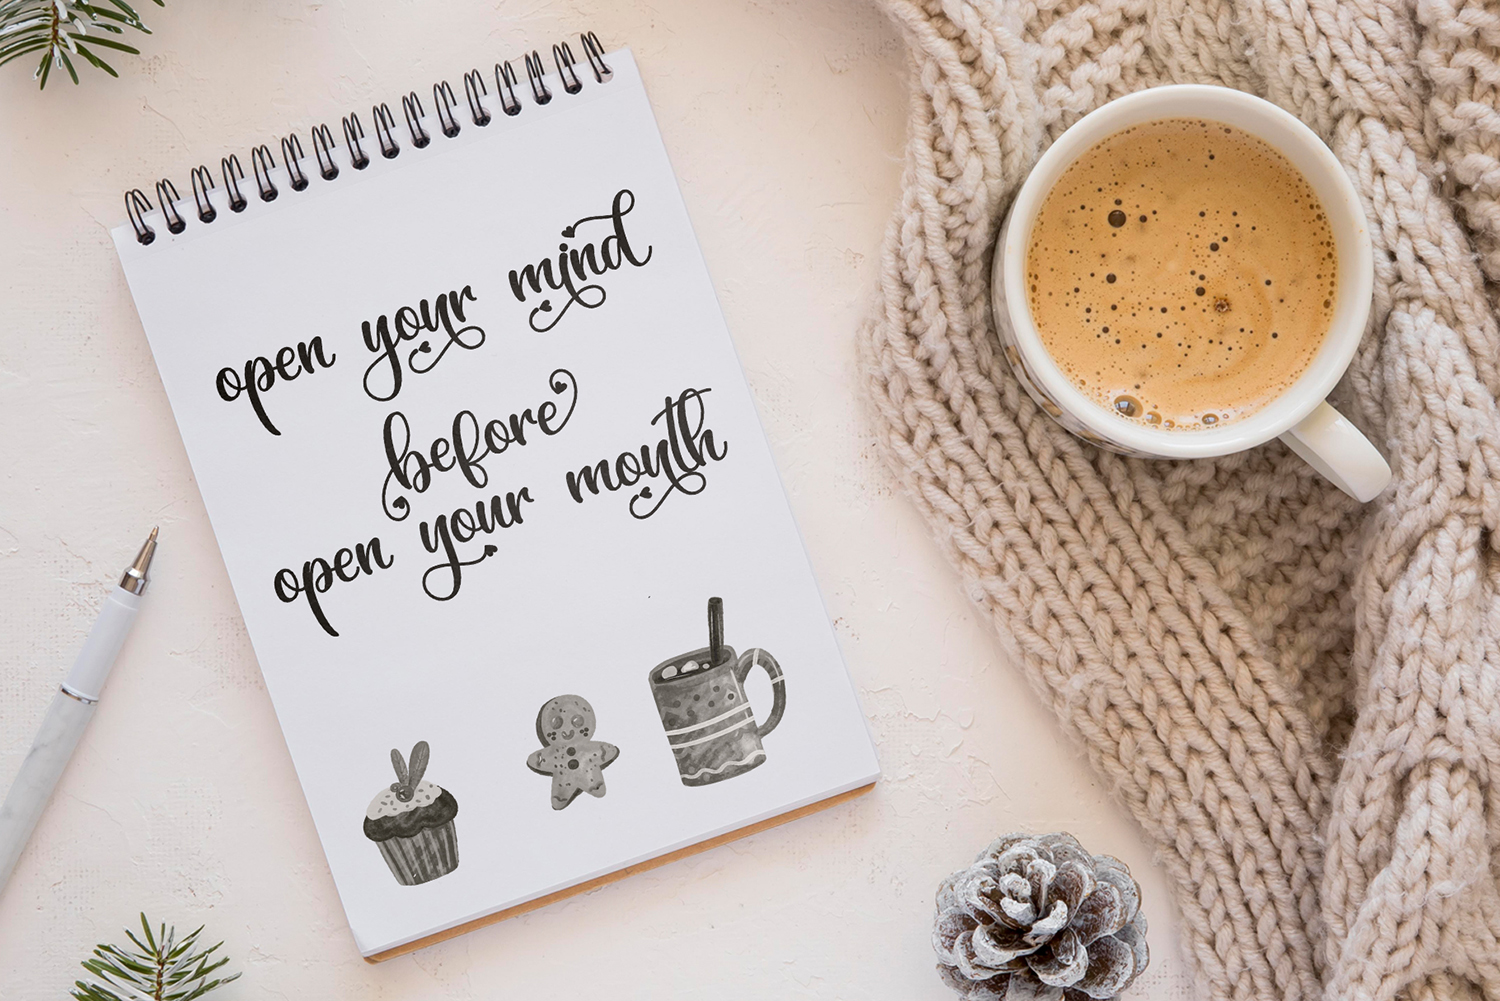 open your mind
before
open your mouth